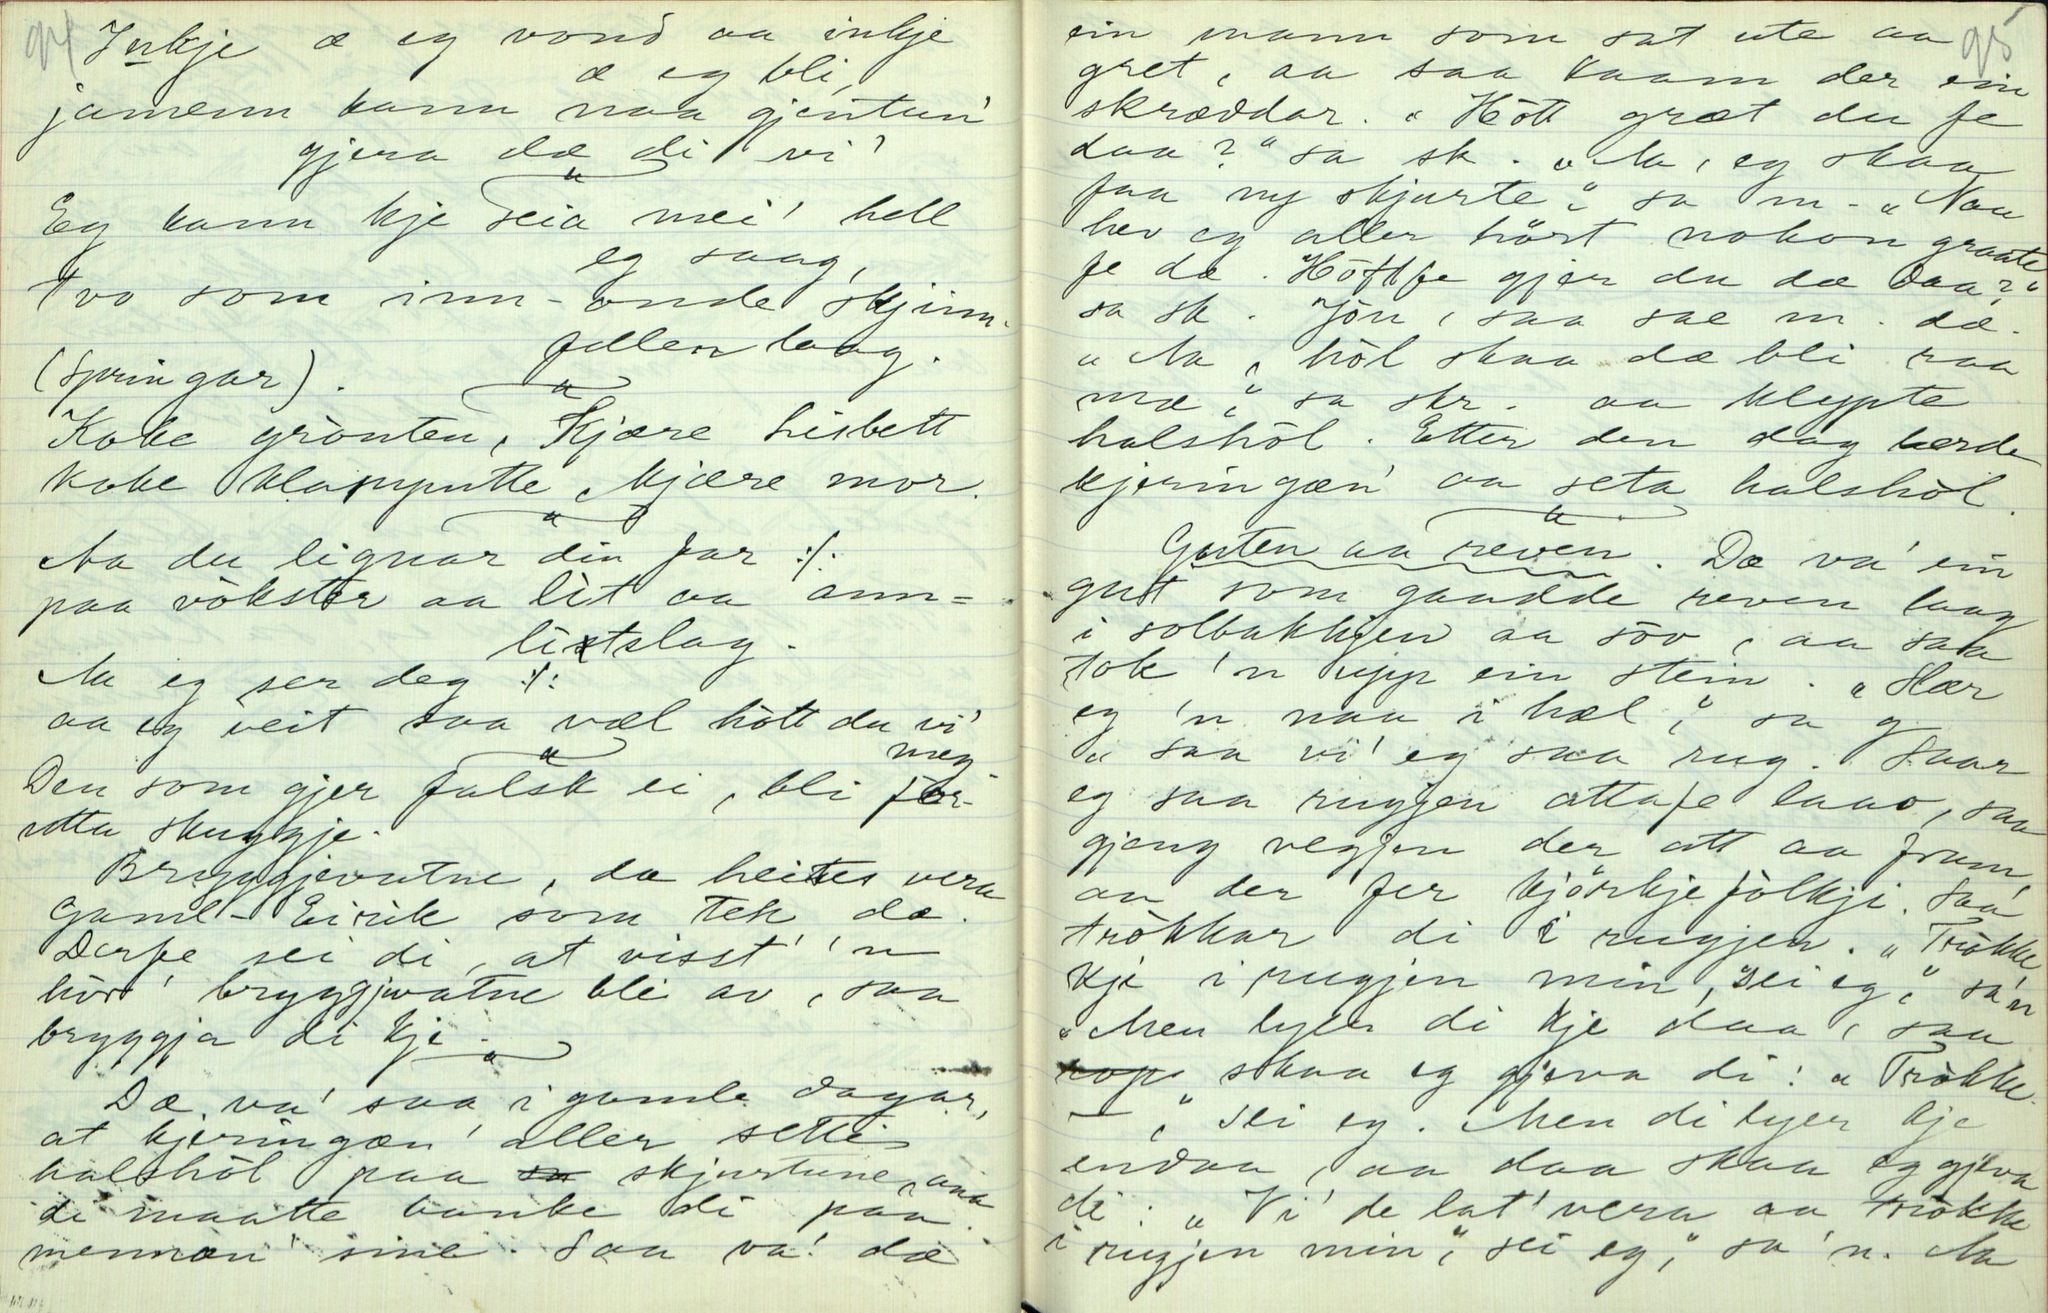 94
Inkje æ eg vond aa inkje
æ eg bli,
jamenn kann naa gjentun'
gjera dæ di vi'
Eg kann kje seia mei' hell
eg saag,
tvo som inn-onde skjinn-
fellen laag.
(springar).
Koke grònten, kjære Lisbett
koke klappputte, kjære mor.
Aa du lignar din far :/:
paa vökster aa lèt aa ann-
letslag.
Aa eg ser deg :/:
aa eg veit saa væl hòtt du vi'
meg.
Den som gjer falsk ei, bli for-
utta skuggje.
Bryggjevatne, dæ heites vera
Gaml-Eirik som tek dæ.
Derfe sei di, at visst 'n
hör' bryggjevatne bli av, saa
bryggja di kje.
Dæ va' saa i gamle dagar,
at kjeringæn' aller sette
halshòl paa skjurtune, aaa
di maatte banke di paa
mennæn' sine. Saa va' dæ
95
ein mann som sat ute aa
gret, aa saa kaam der ein
skræddar. "Hòtt græt du fe
daa?" sa sk. "Aa, eg skaa
faa ny skjurte," sa m. "Naa
hev eg aller hört nokon graate
fe dæ. Hòtt fe gjer du dæ daa?"
sa sk. Jön, saa sae m. dæ.
"Aa, hòl skaa dæ bli raa
mæ," sa skr. aa klypte
halshòl. Etter den dag lærde
kjeringæn' aa seta halshòl.
Guten aa reven. Dæ va' ein
gut som gaadde reven laag
i solbakkjen aa söv, aa saa
tok 'n upp ein stein. "Slær
eg 'n naa i hæl," sa g
"saa vi' eg saa rug. Saar
eg saa rugjen attafe laav, saa
gjeng vegjen der att aa fram,
aa der fer kjörkjefòlkji. Saa
tròkkar di i rugjen. "Tròkke
kje i rugjen min, sei eg," sa'n
"Men lyer di kje daa, saa
skaa eg gjeva di: "Tròkke
— ," sei eg. Men di lyer kje
endaa, aa daa skaa eg gjeva
di: "Vi' de lat' vera aa tròkke
i rugjen min," sei eg," sa 'n. Aa